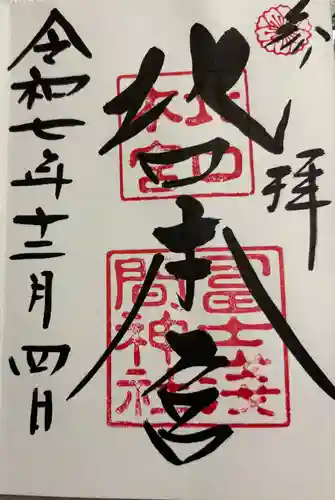 奉拝
北口本宮
冨士淺
間神社
令和七年十二月四日